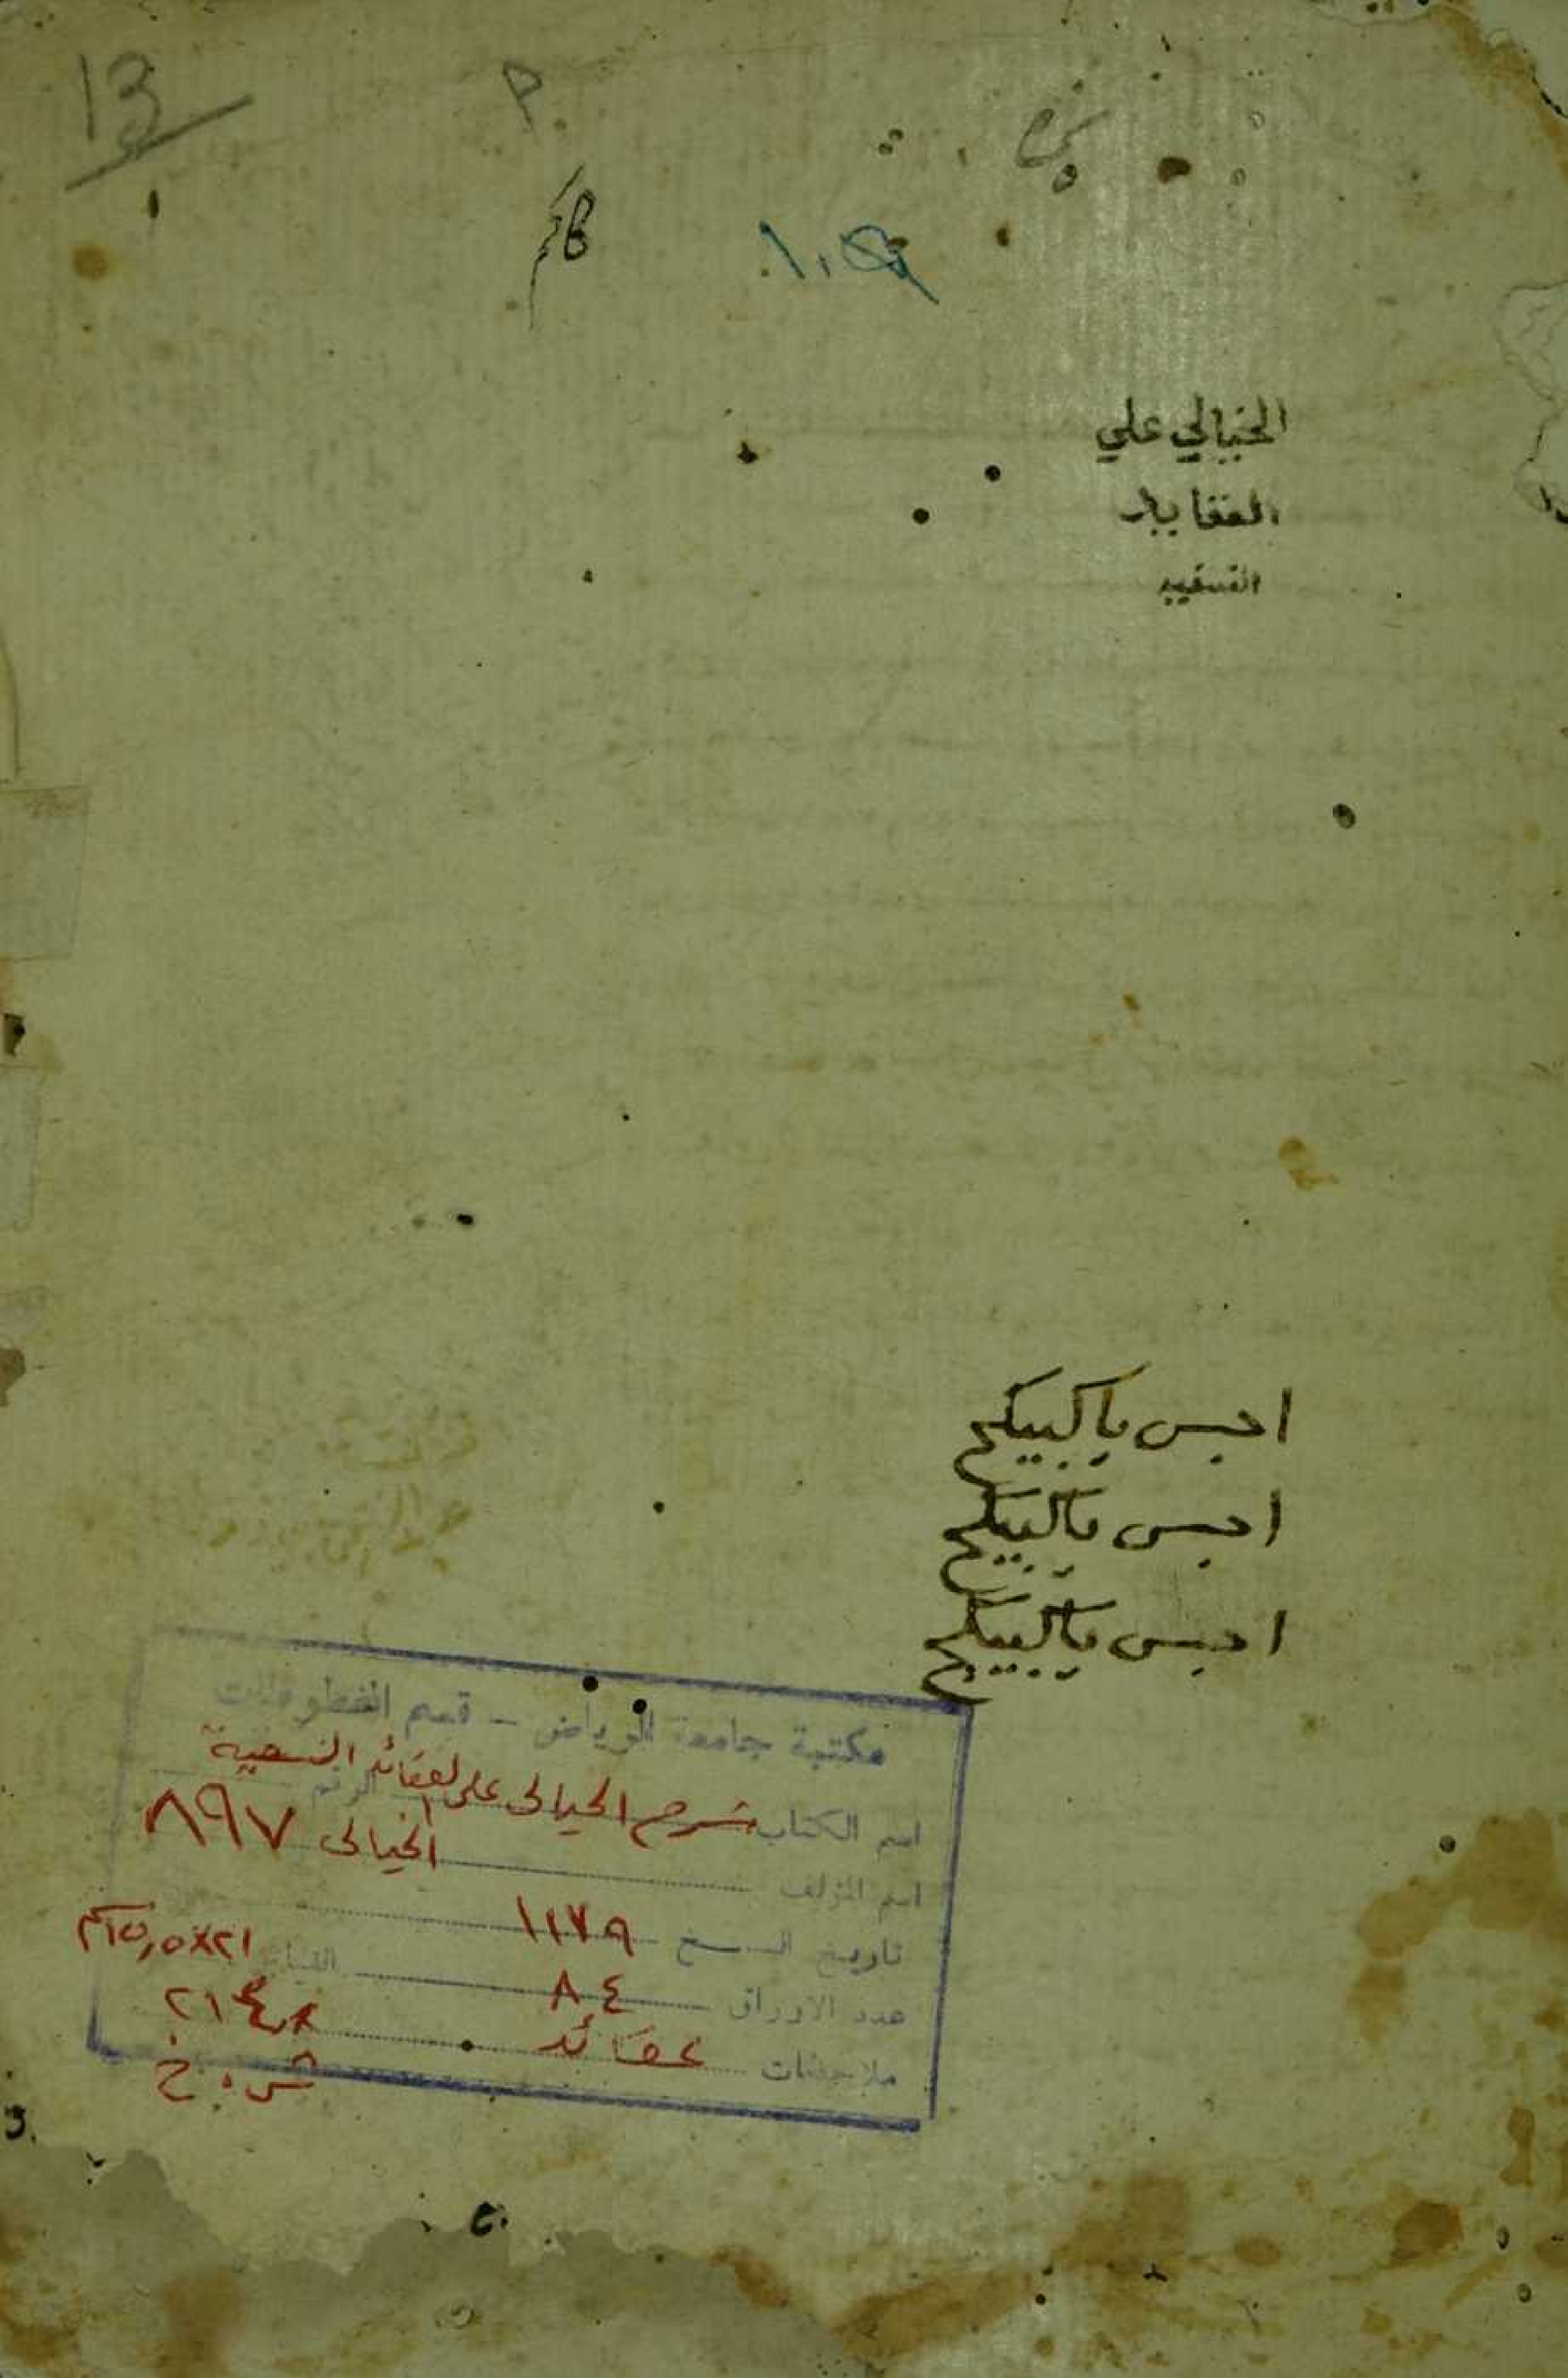 13
الخيالي علي
العقايد
النسفيه
احبس يا كبيكج
احبس يا كبيكج
احبس يا كبيكج
مكتبة جامعة الرياض - قسم المخطوطات
اسم الكتاب شرح الخيالى على العقائد النسفية الرقم ٨٩٧
اسم المؤلف الخيالى
تاريخ النسخ ١١٧٩
عدد الاوراق ٨٤ القياس ٢١×١٥,٥ سم
ملاحظات عقائد ٢١٤